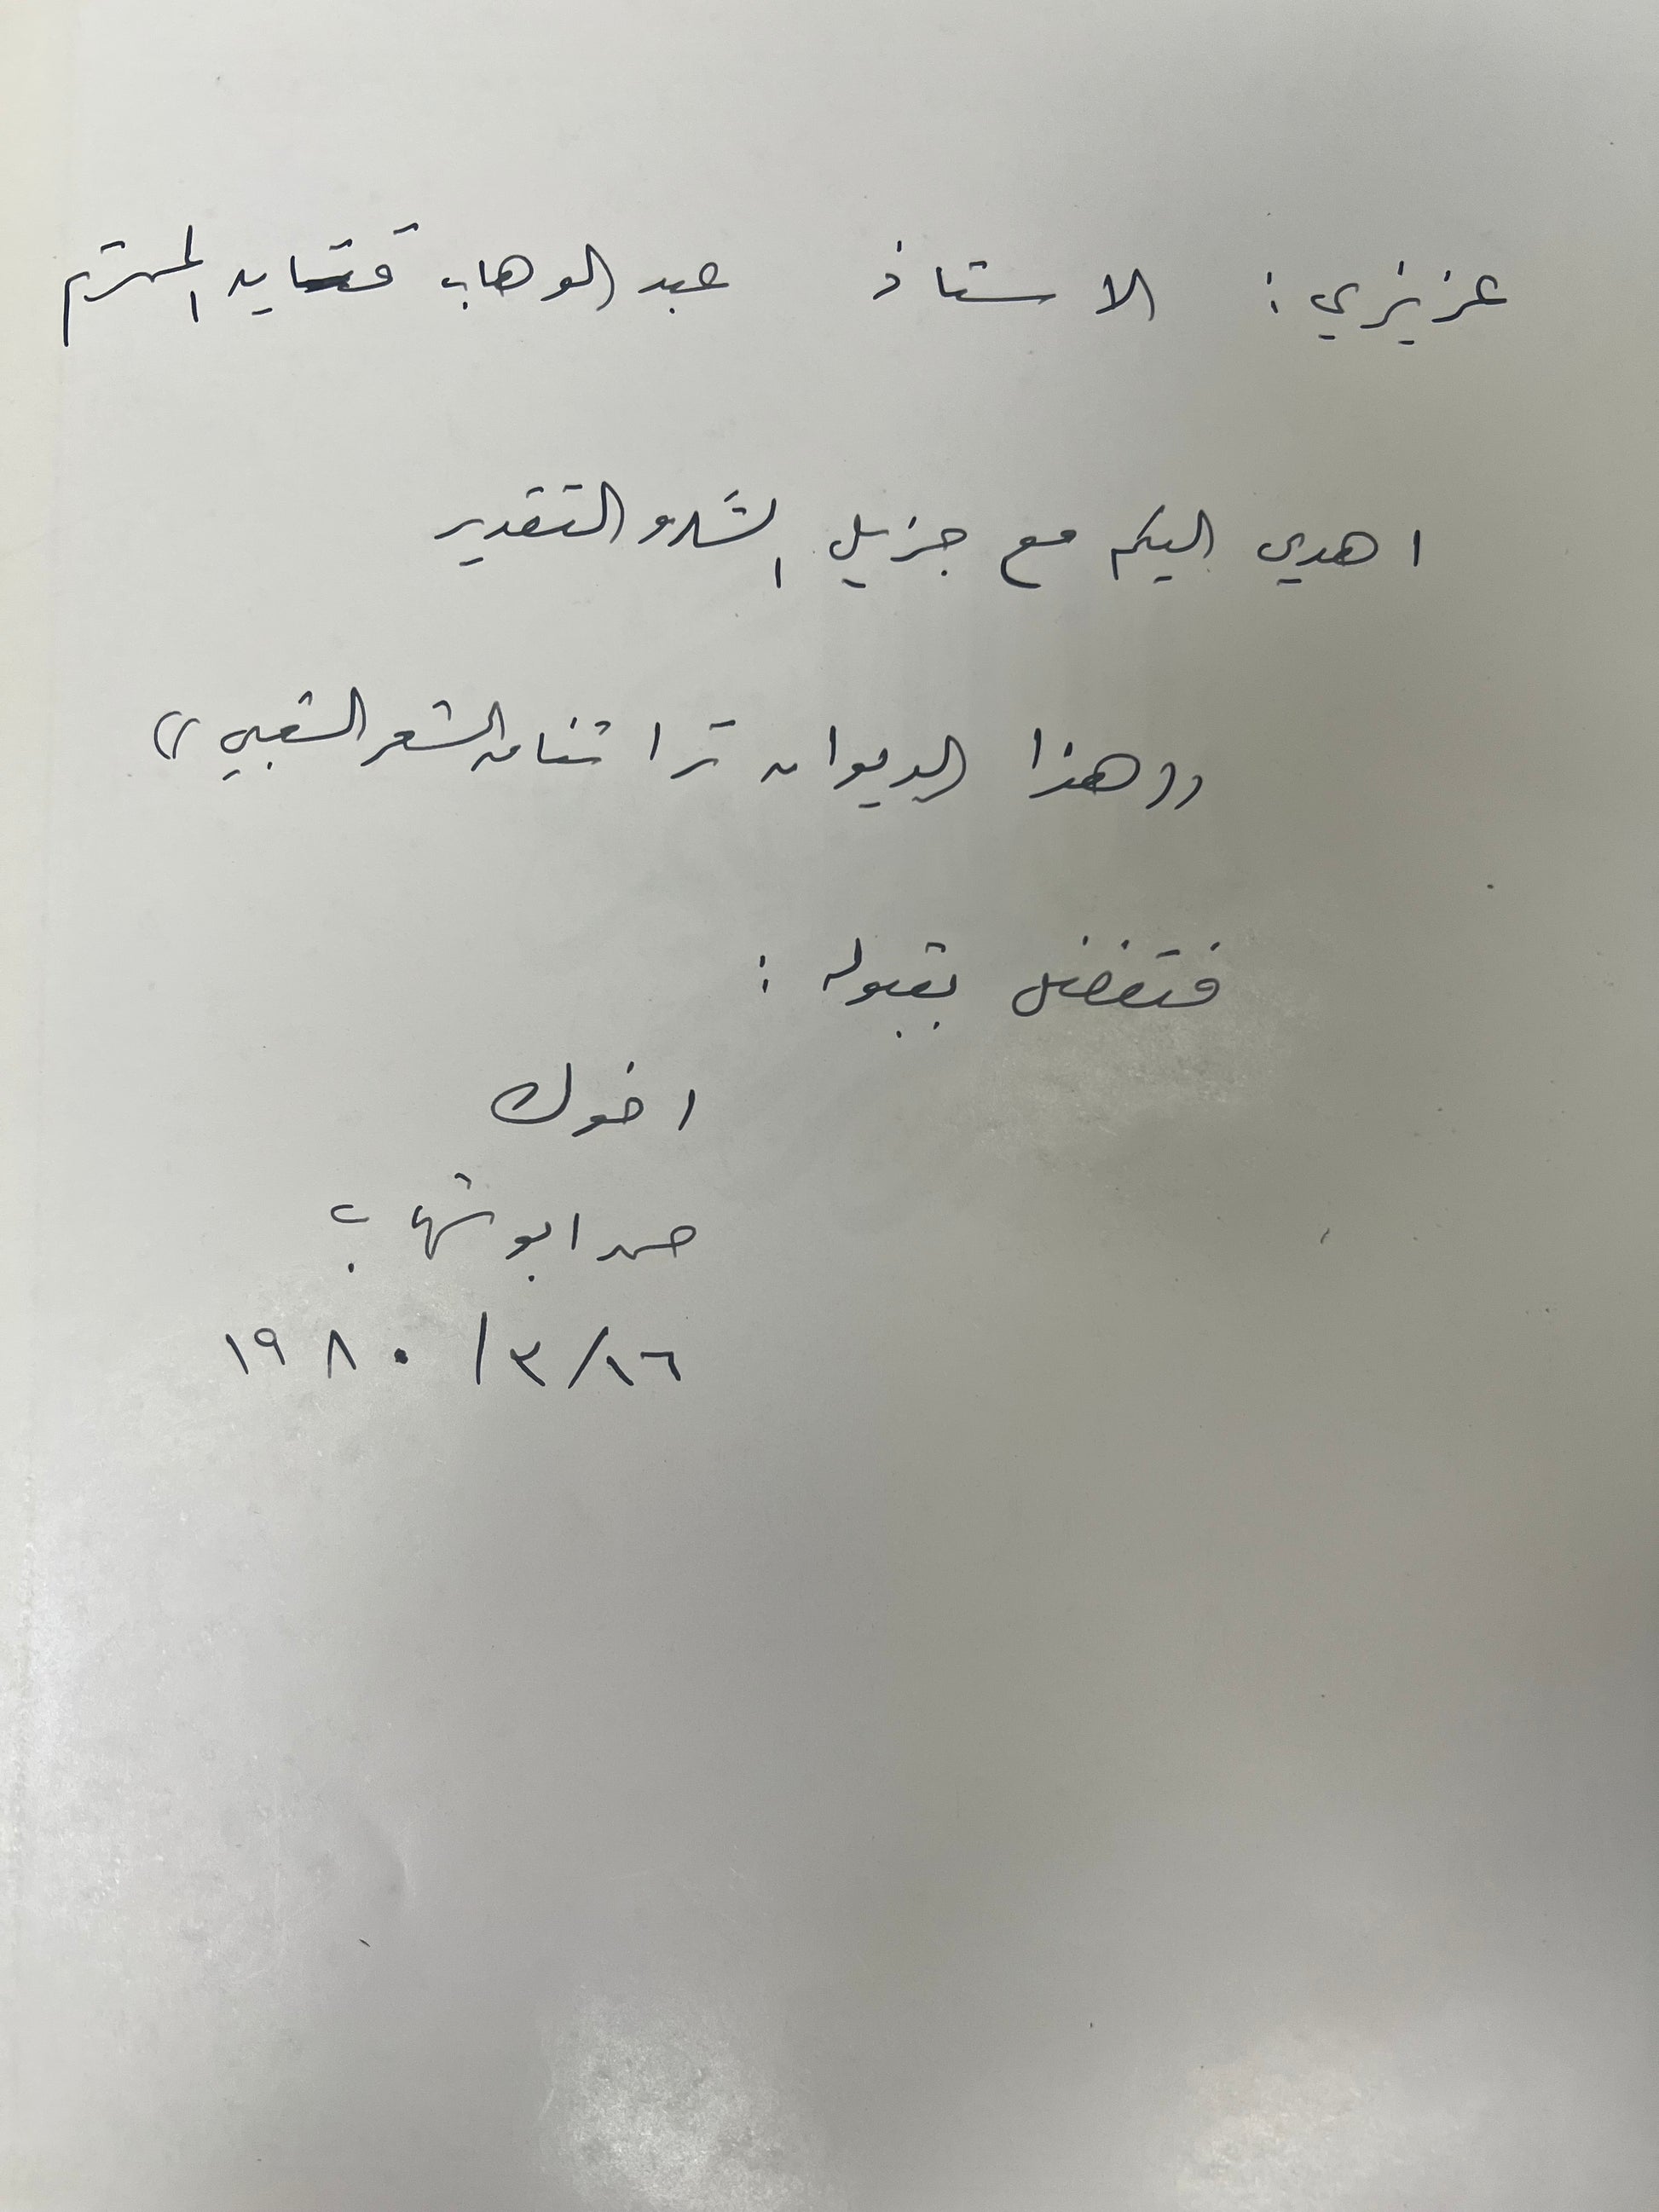 عزيزي : الاستاذ عبد الوهاب المحترم
اهدي اليكم مع جزيل الشكر والتقدير
((هذا الديوان تراثنا من الشعر الشعبي))
فتفضل بقبوله :
اخوك
حمد ابو شهاب
١٦/٣/١٩٨٠